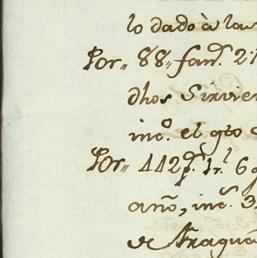 lo dado à las
Por,, 88,, fan.s 2
dhos Sirvie
inc.s el gto
Por,, 442 p.s 1 r.l 6 g
año, inc.s 3
de Fragua